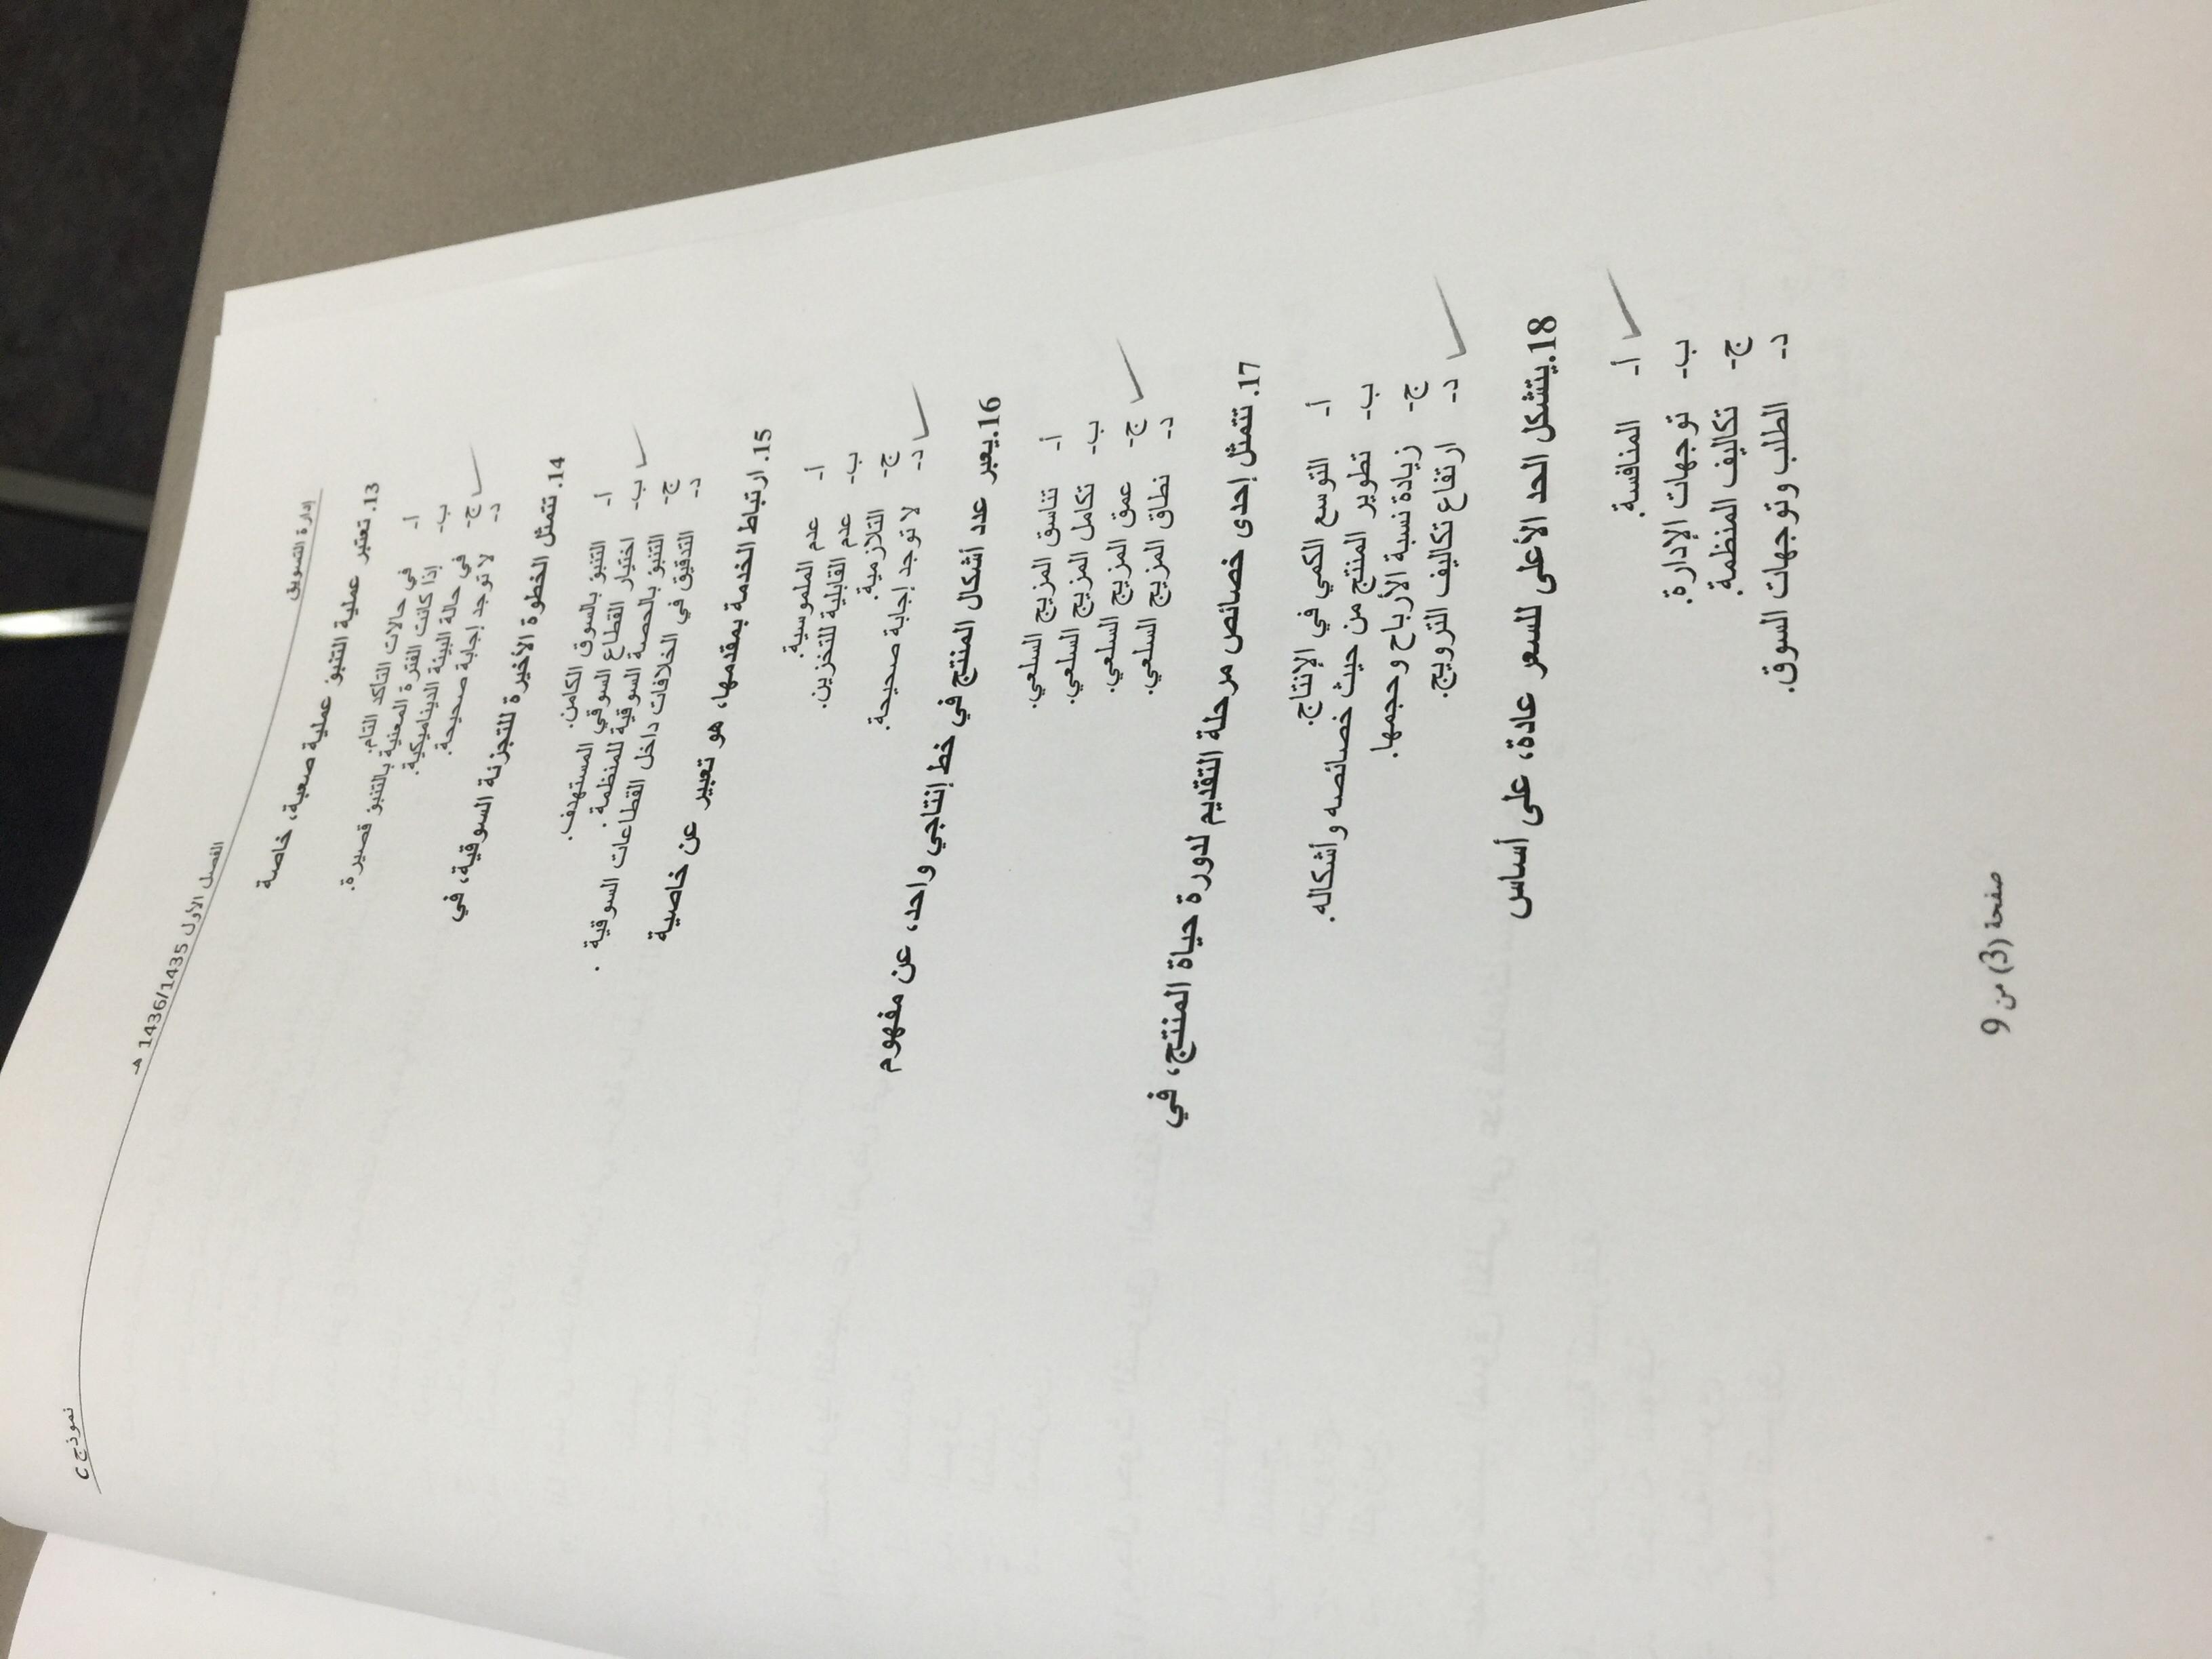 إدارة التسويق الفصل الأول 1436/1435 هـ نموذج C
13. تعتبر عملية التنبؤ عملية صعبة، خاصة
أ- في حالات التأكد التام.
ب- إذا كانت الفترة المعنية بالتنبؤ قصيرة.
ج- في حالة البيئة الديناميكية.
د- لا توجد إجابة صحيحة.
14. تتمثل الخطوة الأخيرة للتجزئة السوقية، في
أ- التنبؤ بالسوق الكامن.
ب- اختيار القطاع السوقي المستهدف.
ج- التنبؤ بالحصة السوقية للمنظمة .
د- التدقيق في الخلافات داخل القطاعات السوقية .
15. ارتباط الخدمة بمقدمها، هو تعبير عن خاصية
أ- عدم الملموسية.
ب- عدم القابلية للتخزين.
ج- التلازمية.
د- لا توجد إجابة صحيحة.
16. يعبر عدد أشكال المنتج في خط إنتاجي واحد، عن مفهوم
أ- تناسق المزيج السلعي.
ب- تكامل المزيج السلعي.
ج- عمق المزيج السلعي.
د- نطاق المزيج السلعي.
17. تتمثل إحدى خصائص مرحلة التقديم لدورة حياة المنتج، في
أ- التوسع الكمي في الإنتاج.
ب- تطوير المنتج من حيث خصائصه وأشكاله.
ج- زيادة نسبة الأرباح وحجمها.
د- ارتفاع تكاليف الترويج.
18. يتشكل الحد الأعلى للسعر عادة، على أساس
أ- المنافسة.
ب- توجهات الإدارة.
ج- تكاليف المنظمة.
د- الطلب وتوجهات السوق.
صفحة (3) من 9